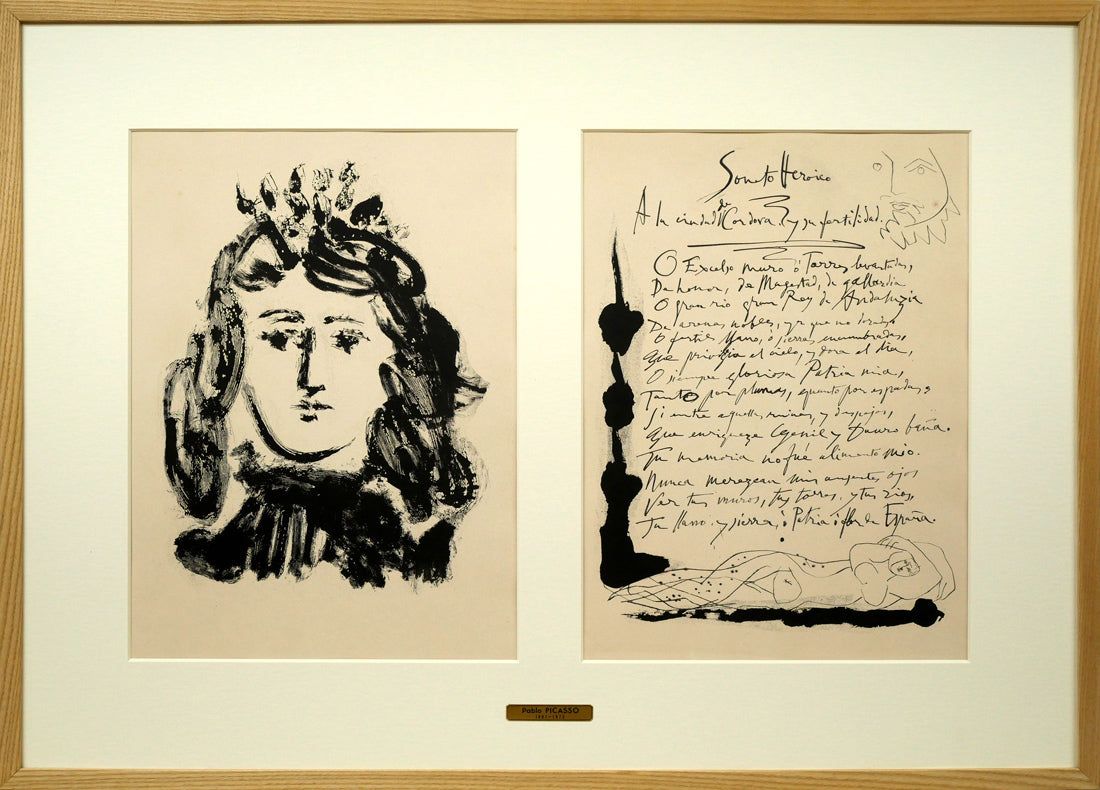 Soneto Heroico
A la ciudad de Cordova. y su fertilidad.
O Excelso muro ó Torres levantadas,
De honor, de Magestad, de gallardia
O gran rio gran Rey de Andaluzia
De arenas nobles, ya que no doradas
O fertil llano, ó sierras encumbradas,
Que privilegia el cielo, y dora el dia,
O siempre gloriosa Patria mia,
Tanto por plumas, quanto por espadas,
Si entre aquellas ruinas, y despojos,
Que enriqueze Genil y Dauro baña.
Tu memoria no fué alimento mio.
Nunca merezcan mis ausentes ojos
Ver tus muros, tus torres, y tus rios,
Tu llano, y sierra, ó Patria ó flor de España.
Pablo PICASSO
1881-1973